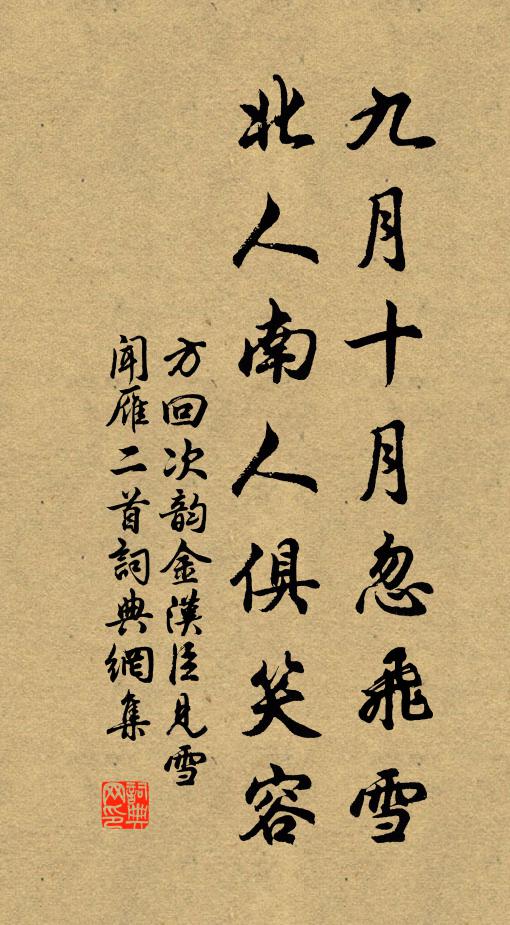 九月十月忽飛雪
北人南人俱笑容
方回次韵金漢臣見雪
聞雁二首詞典網集
詞典网印